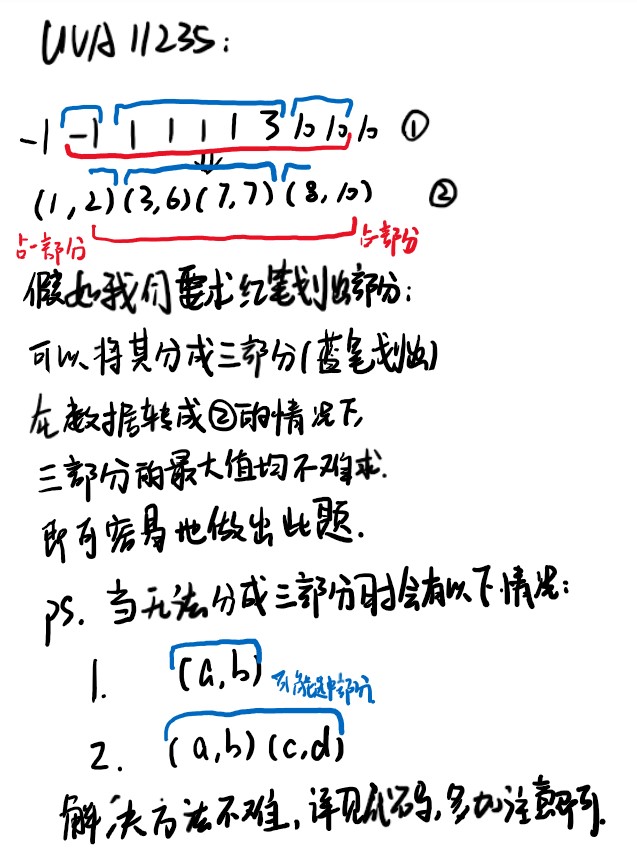 UVA 11235:
-1 -1 1 1 1 1 3 10 10 10 ①
(1,2)(3,6)(7,7)(8,10) ②
占一部分 占一部分
假如我们要求红笔划出部分:
可以将其分成三部分(蓝笔划出)
在数据转成②的情况下,
三部分的最大值均不难求.
即可容易地做出此题.
ps. 当无法分成三部分时会有以下情况:
1. (a,b) 可能选中部分
2. (a,b)(c,d)
解决方法不难,详见代码,多加注意即可.